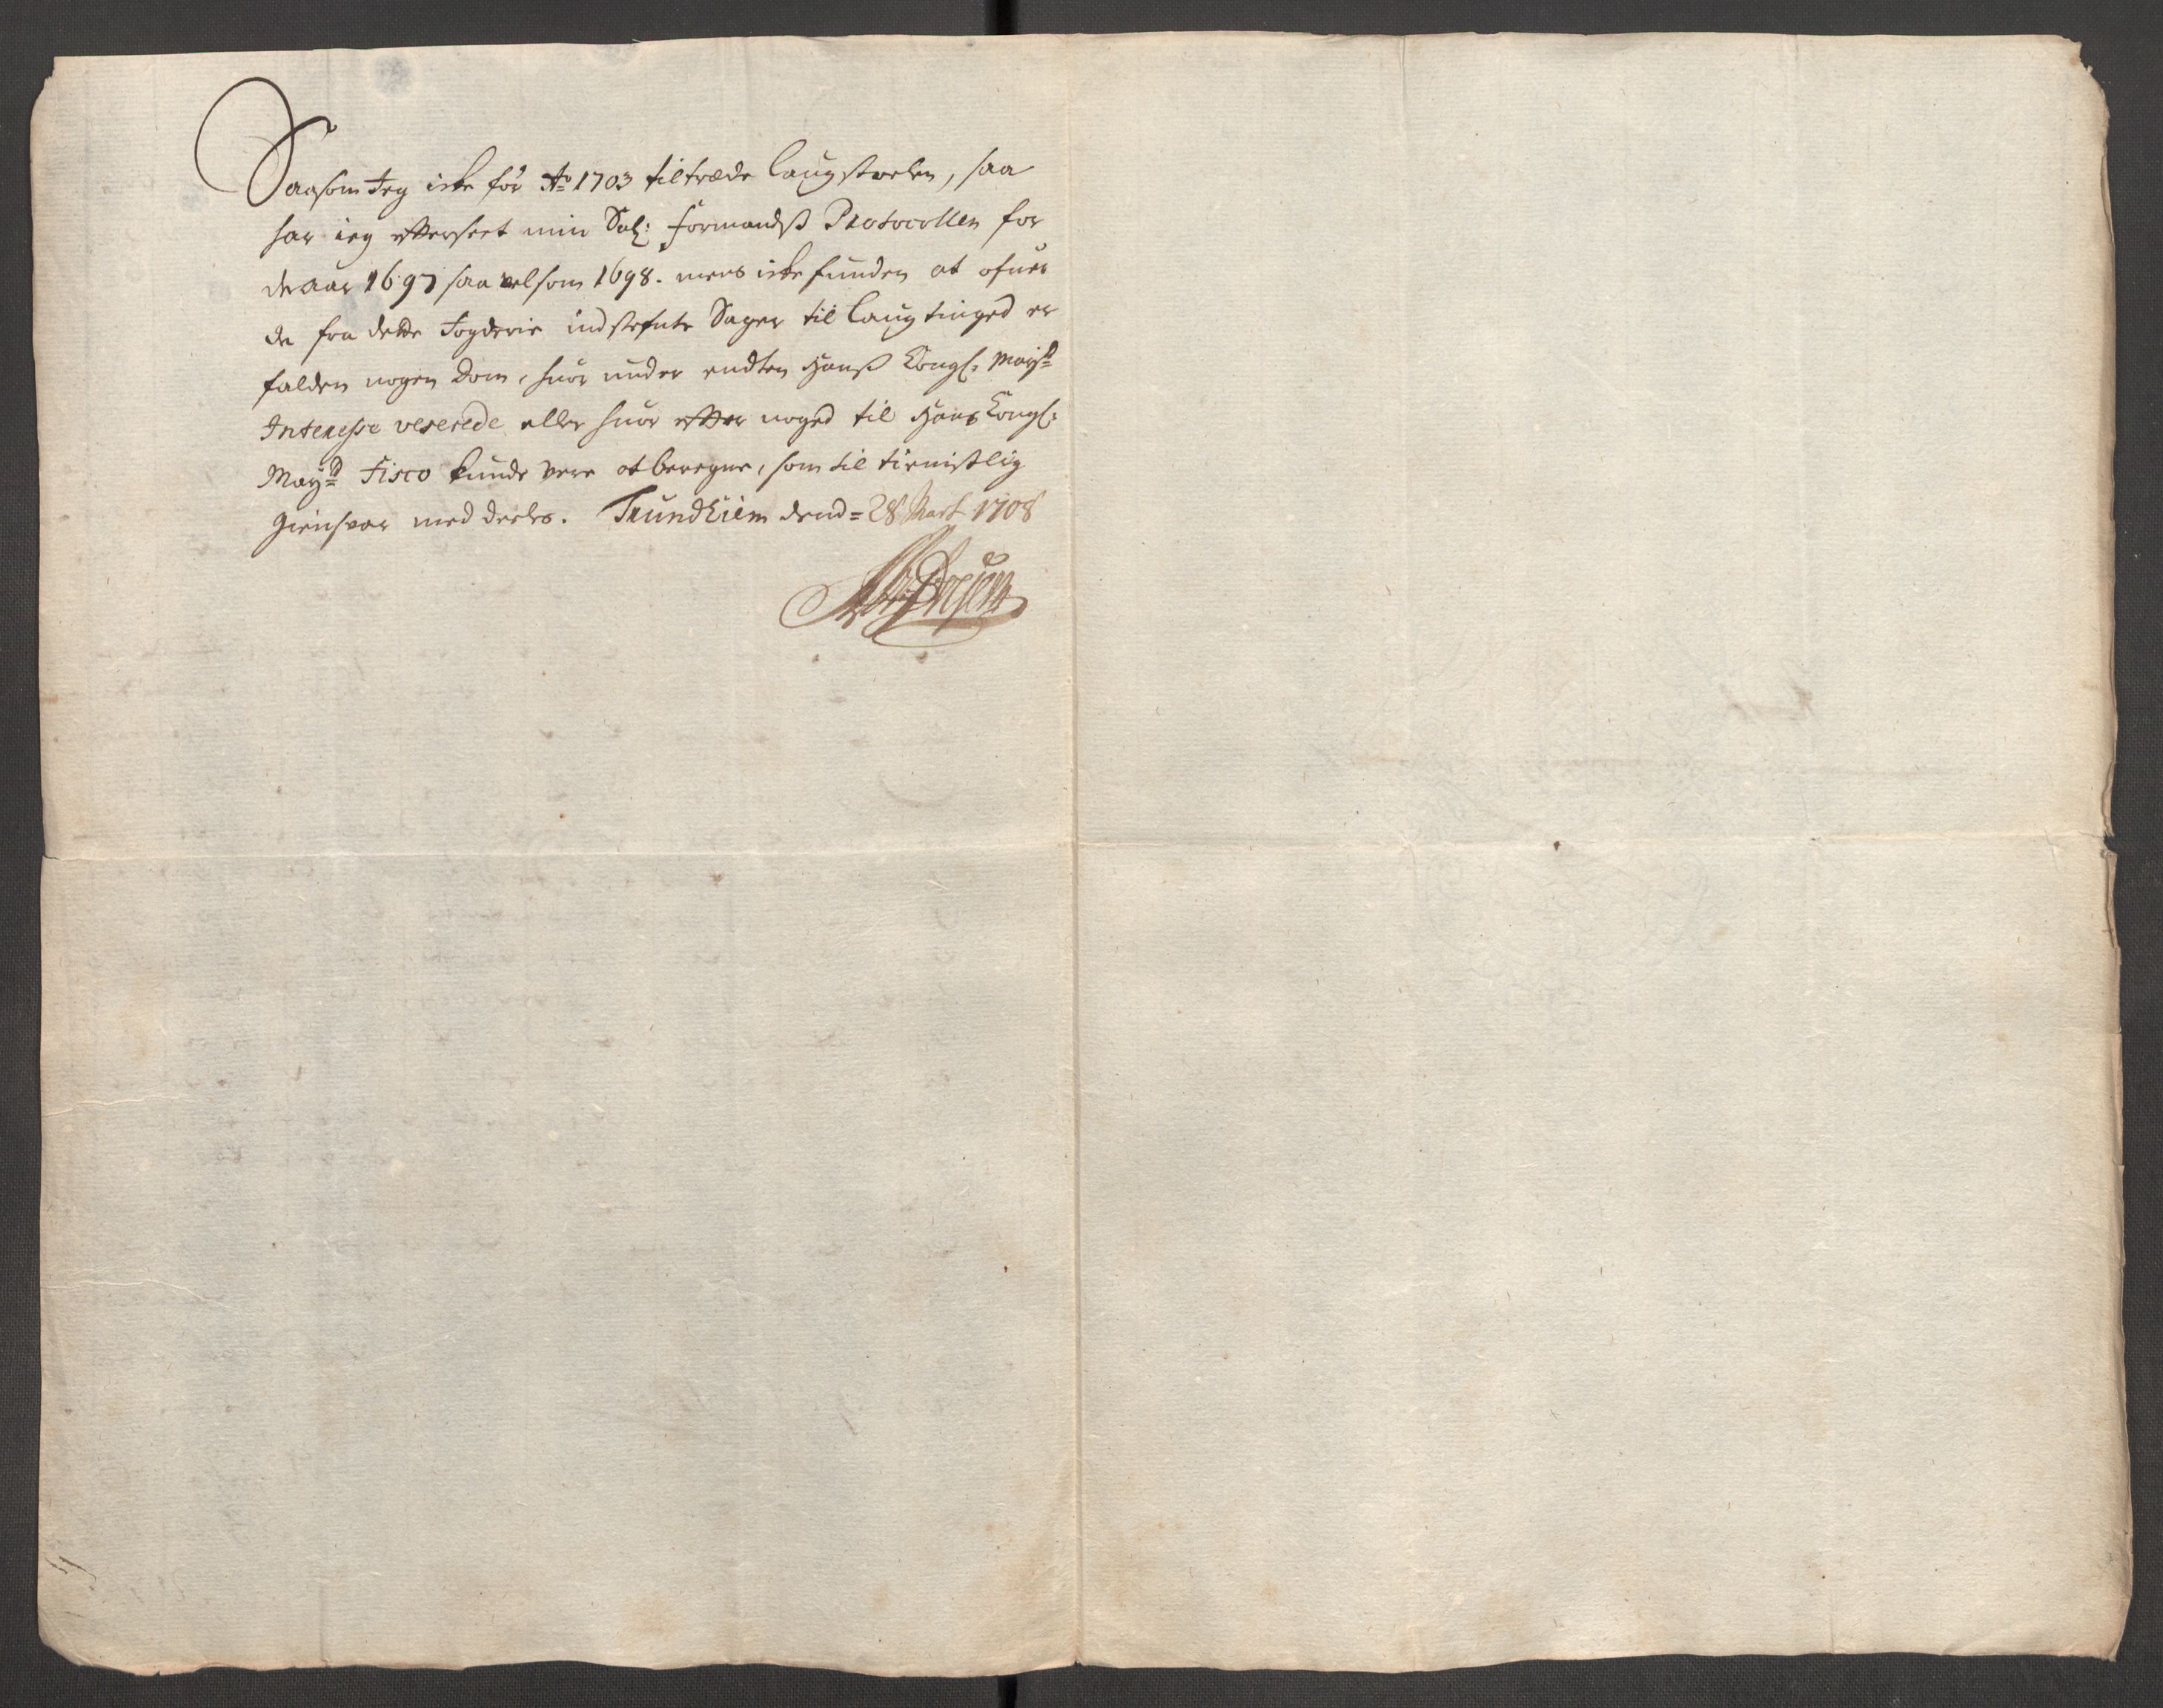 Saasom Jeg icke før Ao 1703 tiltræde Laugstoelen, saa
har ieg efterseet min Sal: Formandß Protocoller for
de aar 1697 saa velsom 1698. mens icke funden at ofuer
de fra dette Fogderie indstefnte Sager til Laugtinged er
falden nogen Dom, huor under endten Hanß Kongl: Mayts
Interesse veserede eller huor efter noged til Hans Kongl:
Mayts Fisco kunde vere at beregne, som til tienistlig
Giensvar med deeles. Trundhiem dend= 28 Mart 1708